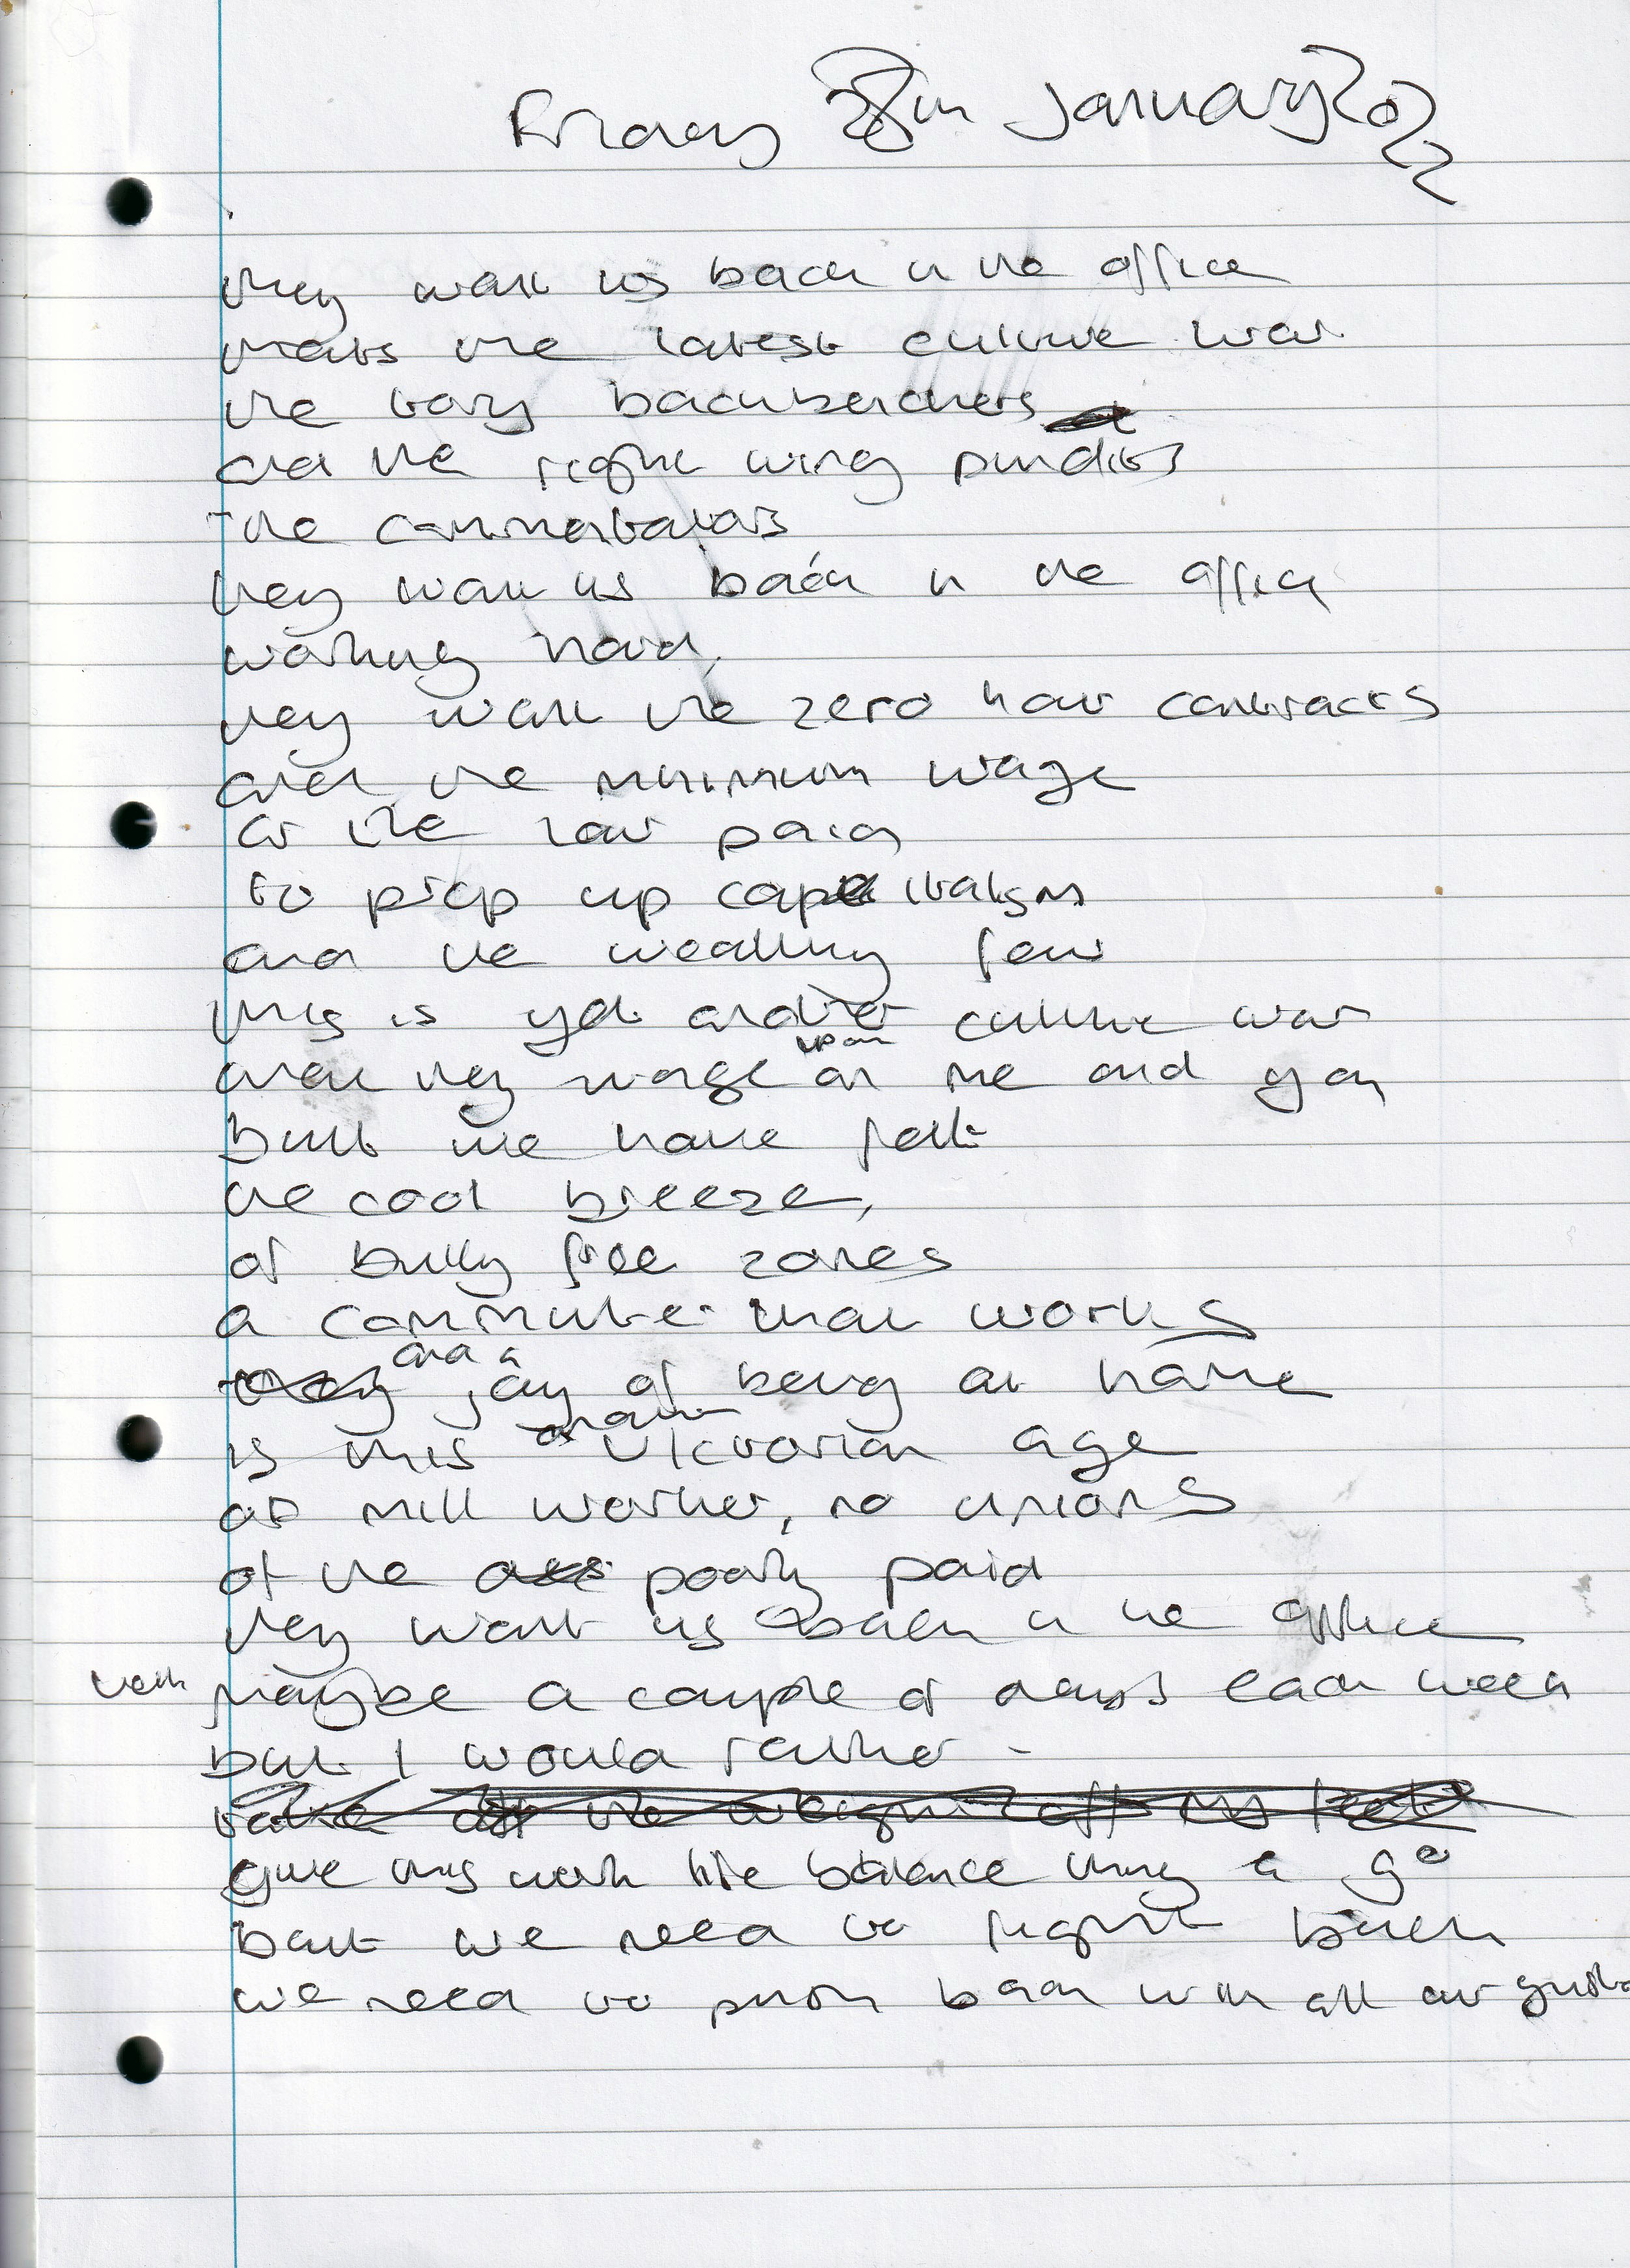 Friday 28th January 2022
they want us back in the office
thats the latest culture war
the tory backbenchers
and the right wing pundits
the commentators
they want us back in the office
working hard,
they want the zero hour contracts
and the minimum wage
or the low paid
to prop up capitalism
and the wealthy few
this is yet another culture war
and they wage upon on me and you
but we have felt
the cool breeze,
of bully free zones
a commute that works
and a joy of being at home
is this another Victorian age
of mill worker, no unions
of the poorly paid
they want us back in the office
maybe a couple of days each week
but I would rather -
take the weight off my feet
give this work life balance thing a go
but we need to fight back
we need to push back with all our